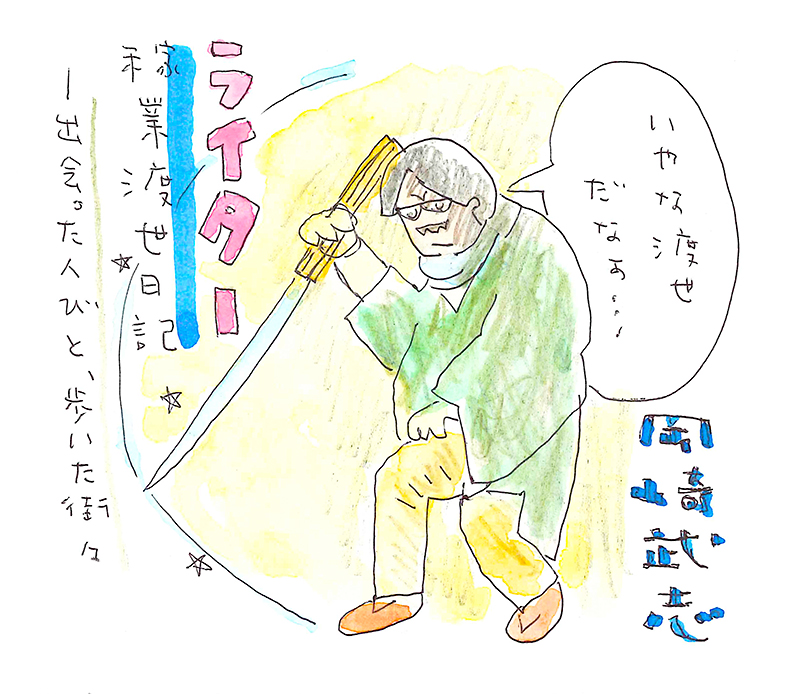 ライター
稼業渡世日記
―出会った人びと、歩いた街々
いやな渡世
だなぁ…
岡崎武志